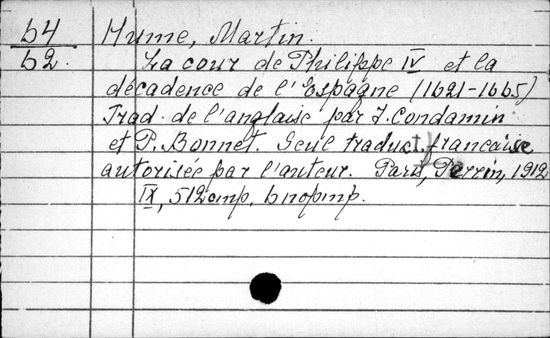 64 Hume, Martin.
62. La cour de Philippe IV et la
décadence de l'Espagne (1621-1665)
Trad. de l'anglaise par J. Condamin
et P. Bonnet. Seul traduct. francaise
autorisée par l'auteur. Paris, Perrin, 1912
IX, 512 стр., 6 портр.